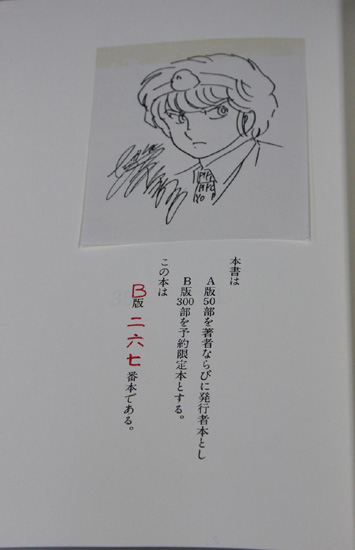 PIYO
本書は
A版50部を著者ならびに発行者本とし
B版300部を予約限定本とする。
この本は
B版 二六七 番本である。